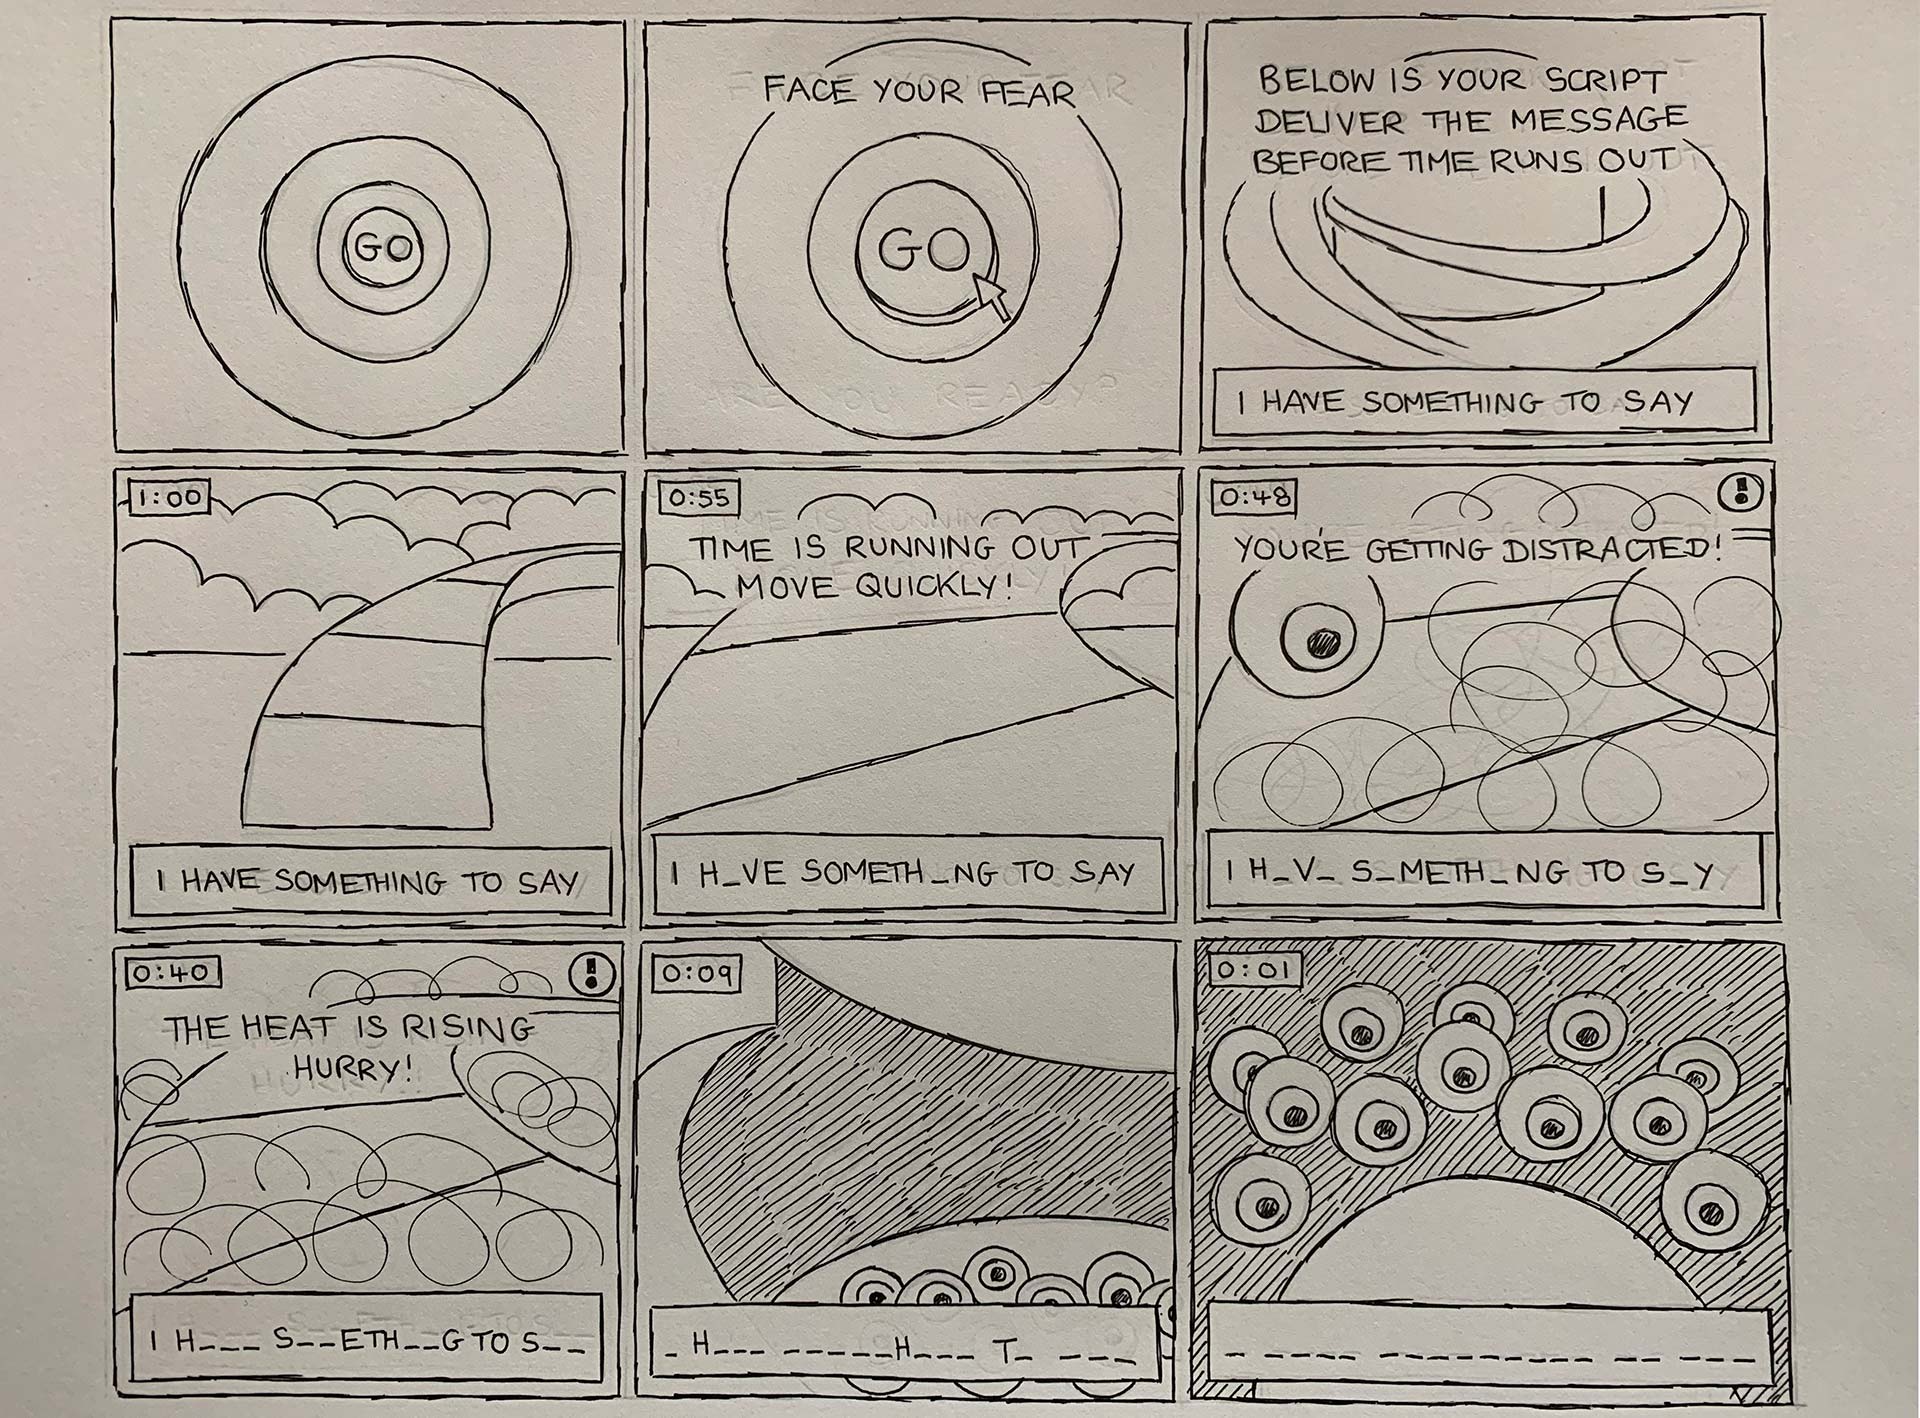 GO
FACE YOUR FEAR
GO
BELOW IS YOUR SCRIPT
DELIVER THE MESSAGE
BEFORE TIME RUNS OUT
I HAVE SOMETHING TO SAY
1:00
I HAVE SOMETHING TO SAY
0:55
TIME IS RUNNING OUT
MOVE QUICKLY!
I H_VE SOMETH_NG TO SAY
0:48
!
YOU'RE GETTING DISTRACTED!
I H_V_ S_METH_NG TO S_Y
0:40
!
THE HEAT IS RISING
HURRY!
I H___ S__ETH__G TO S__
0:09
_ H___ _____H___ T_ ___
0:01
_ ____ _________ __ ___